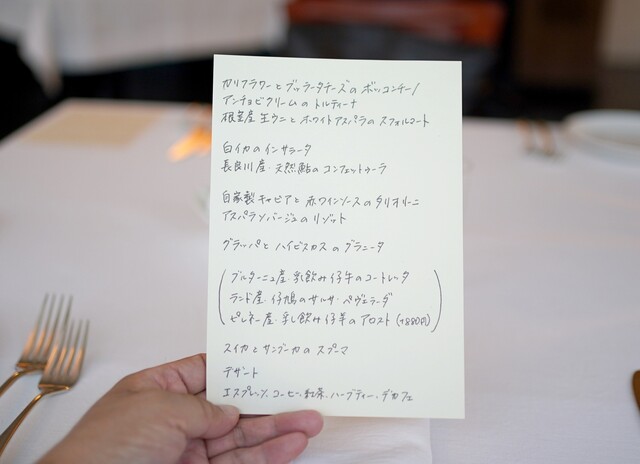 カリフラワーとブッラータチーズのボッコンチーノ
アンチョビクリームのトルティーナ
根室産生ウニとホワイトアスパラのスフォルマート
白イカのインサラータ
長良川産・天然鮎のコンフェットゥーラ
自家製キャビアと赤ワインソースのタリオリーニ
アスパラソバージュのリゾット
グラッパとハイビスカスのグラニータ
ブルターニュ産・乳飲み仔牛のコートレッタ
ランド産・仔鳩のサルサ・ペヴェラーダ
ピレネー産・乳し飲み仔羊のアロスト(+880円)
スイカとサンブーカのスプーマ
デザート
エスプレッソ、コーヒー、紅茶、ハーブティー、デカフェ